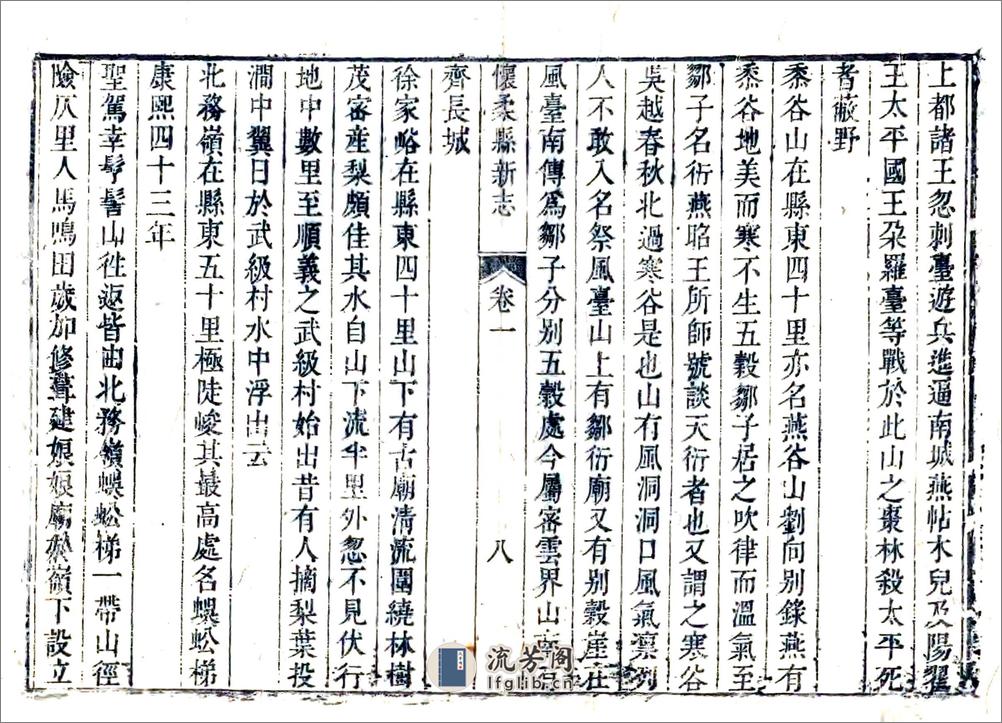 上都諸王忽剌臺遊兵進逼南城燕帖木兒及陽翟
王太平國王朶羅臺等戰於此山之棗林殺太平死
者蔽野
黍谷山在縣東四十里亦名燕谷山劉向別錄燕有
黍谷地美而寒不生五穀鄒子居之吹律而溫氣至
鄒子名衍燕昭王所師號談天衍者也又謂之寒谷
吳越春秋北過寒谷是也山有風洞洞口風氣凛列
人不敢入名祭風臺山上有鄒衍廟又有別穀崖在
風臺南傳爲鄒子分別五穀處今屬密雲界山
懷柔縣新志 卷一 八
齊長城
徐家峪在縣東四十里山下有古廟清流圍繞林樹
茂密産梨頗佳其水自山下流半里外忽不見伏行
地中數里至順義之武級村始出昔有人摘梨葉投
澗中翼日於武級村水中浮出云
北務嶺在縣東五十里極陡峻其最高處名蜈蚣梯
康熙四十三年
聖駕幸髽髻山徃返皆由北務嶺蜈蚣梯一帶山徑
險仄里人馬鳴田歲加修葺建娘娘廟於嶺下設立
流芳阁
lfglib.cn